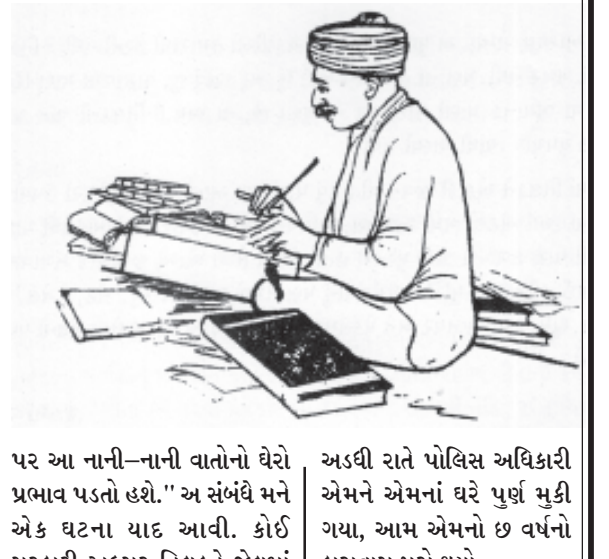 પર આ નાની–નાની વાતોનો ઘેરો
પ્રભાવ પડતો હશે." અ સંબંધે મને
એક ઘટના યાદ આવી. કોઈ
અડધી રાતે પોલિસ અધિકારી
એમને એમનાં ઘરે પુર્ણ મુકી
ગયા, આમ એમનો છ વર્ષનો